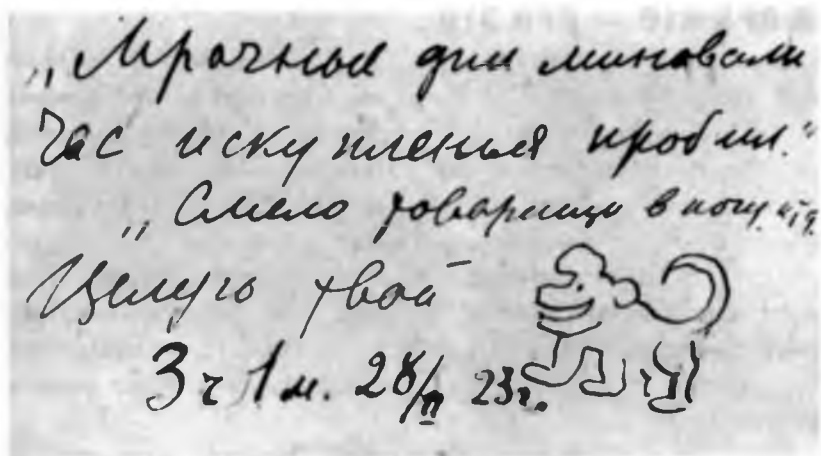 „Мрачные дни миновали
Час искупленья пробил."
„Смело товарищи в ногу."
Целую твой
3 ч 1 м. 28/II 23 г.